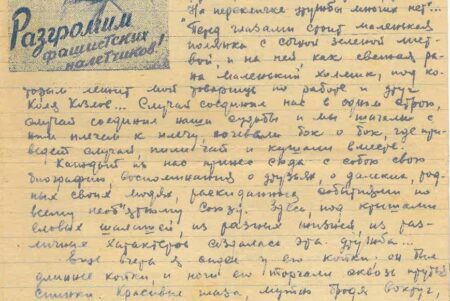 Разгромим
фашистских
налетчиков!
"На перекличке дружбы многих нет"...
Перед глазами стоит маленькая
полянка с сочной зеленой лист-
вой и на ней как свежая ра-
на маленький холмик, под ко-
торым лежит мой товарищ по работе и друг
Коля Козлов... Случай соединил нас в одном строю,
случай соединил наши судьбы и мы шагали с
ним плечом к плечу, ночевали бок о бок, где при-
ведет случай, пили чай и кушали вместе.
Каждый из нас принес сюда с собою свою
биографию, воспоминания о друзьях, о далеких, род-
ных своих людях, раскиданных событиями по
всему необъятному Союзу. Здесь, под крышами
еловых шалашей, из разных жизней, из раз-
личных характеров создалась эта дружба...
Еще вчера я сидел у его койки. он был
длиннее койки, и ноги его торчали сквозь прутья
спинки. Красивые глаза, мутно бродя вокруг,